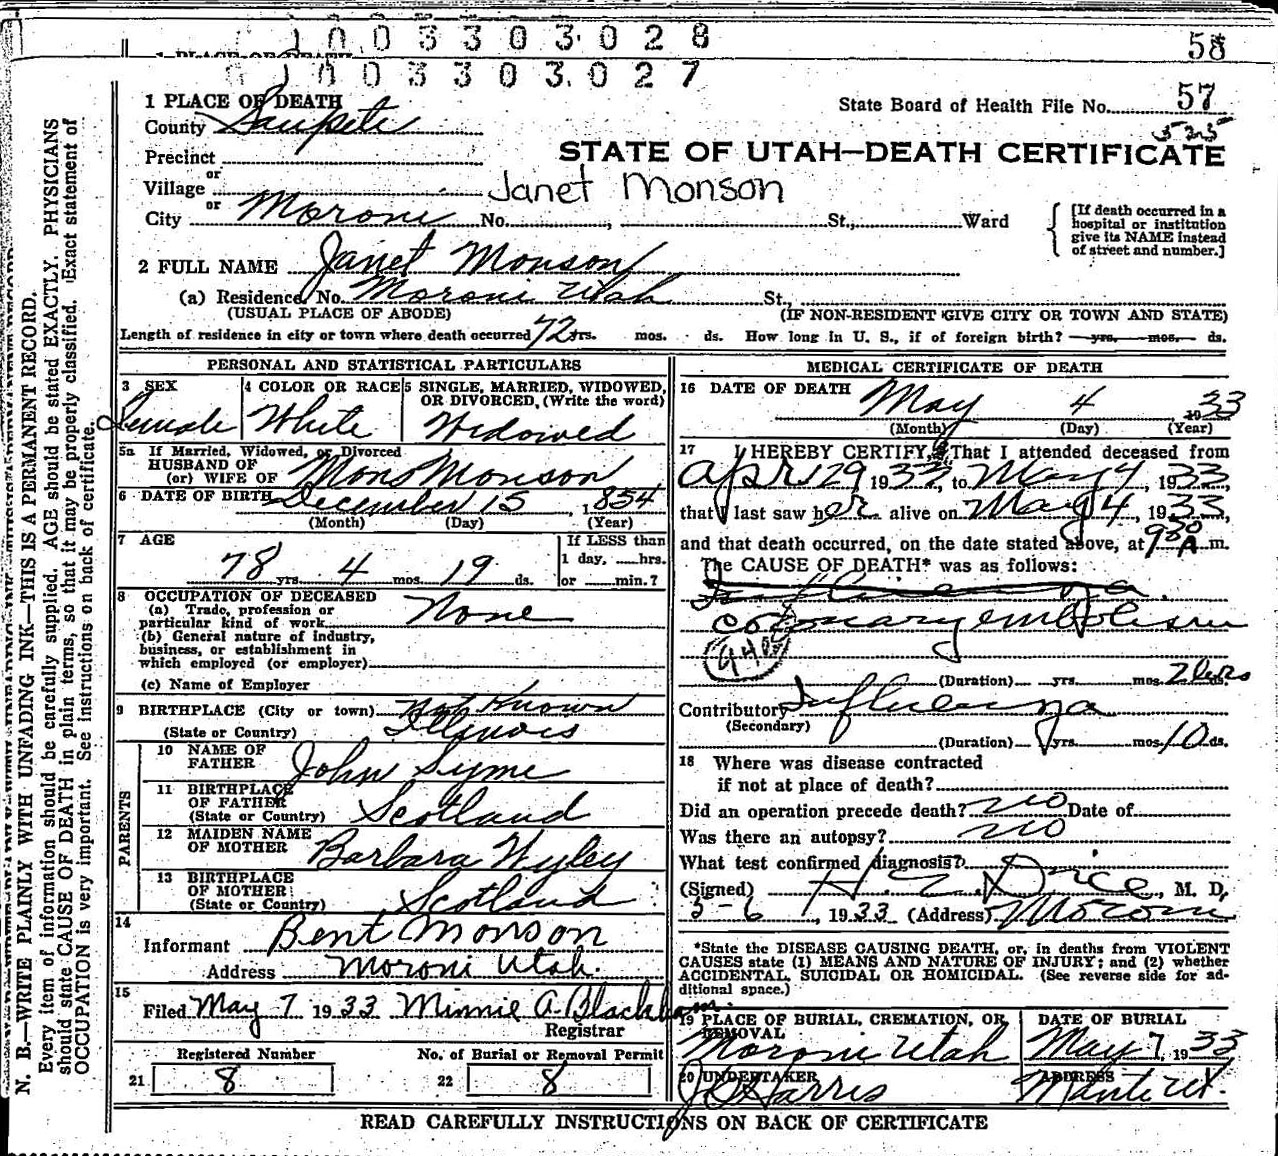 1003303028
58
1 PLACE OF DEATH
1003303027
State Board of Health File No. 57
525
1 PLACE OF DEATH
County Sanpete
STATE OF UTAH—DEATH CERTIFICATE
Precinct
or
Village
Janet Monson
or
City Moroni No. , St., Ward
[If death occurred in a hospital or institution give its NAME instead of street and number.]
2 FULL NAME Janet Monson
(a) Residence, No. Moroni Utah St.,
(USUAL PLACE OF ABODE) (IF NON-RESIDENT GIVE CITY OR TOWN AND STATE)
Length of residence in city or town where death occurred 72 yrs. mos. ds. How long in U. S., if of foreign birth? yrs. mos. ds.
PERSONAL AND STATISTICAL PARTICULARS
3 SEX Female
4 COLOR OR RACE White
5 SINGLE, MARRIED, WIDOWED, OR DIVORCED, (Write the word) Widowed
5a If Married, Widowed, or Divorced
HUSBAND OF
(or) WIFE OF Mons Monson
6 DATE OF BIRTH December 15, 1854
(Month) (Day) (Year)
7 AGE
78 yrs. 4 mos. 19 ds.
If LESS than
1 day, hrs.
or min.?
8 OCCUPATION OF DECEASED
(a) Trade, profession or
particular kind of work None
(b) General nature of industry,
business, or establishment in
which employed (or employer)
(c) Name of Employer
9 BIRTHPLACE (City or town) Not Known
(State or Country) Illinois
PARENTS
10 NAME OF
FATHER John Syme
11 BIRTHPLACE
OF FATHER
(State or Country) Scotland
12 MAIDEN NAME
OF MOTHER Barbara Wyley
13 BIRTHPLACE
OF MOTHER
(State or Country) Scotland
14
Informant Bent Monson
Address Moroni Utah.
15
Filed May 7 1933 Minnie A. Blackham
Registrar
Registered Number
21 8
No. of Burial or Removal Permit
22 8
MEDICAL CERTIFICATE OF DEATH
16 DATE OF DEATH May 4 1933
(Month) (Day) (Year)
17 I HEREBY CERTIFY, That I attended deceased from
Apr 29 1933, to May 4, 1933,
that I last saw her alive on May 4, 1933,
and that death occurred, on the date stated above, at 9 30 A m.
The CAUSE OF DEATH* was as follows:
Influenza
coronary embolism
(Duration) yrs. mos. 2 hrs ds.
Contributory Influenza
(Secondary)
(Duration) yrs. mos. 10 ds.
18 Where was disease contracted
if not at place of death?
Did an operation precede death? no Date of
Was there an autopsy? no
What test confirmed diagnosis?
(Signed) M. D.
5-6, 1933 (Address) Moroni
*State the DISEASE CAUSING DEATH, or, in deaths from VIOLENT
CAUSES state (1) MEANS AND NATURE OF INJURY; and (2) whether
ACCIDENTAL, SUICIDAL OR HOMICIDAL. (See reverse side for ad-
ditional space.)
19 PLACE OF BURIAL, CREMATION, OR,
REMOVAL
Moroni Utah
DATE OF BURIAL
May 7, 1933
20 UNDERTAKER
Harris
ADDRESS
Manti Ut.
READ CAREFULLY INSTRUCTIONS ON BACK OF CERTIFICATE
N. B.—WRITE PLAINLY WITH UNFADING INK—THIS IS A PERMANENT RECORD.
Every item of information should be carefully supplied. AGE should be stated EXACTLY. PHYSICIANS
should state CAUSE OF DEATH in plain terms, so that it may be properly classified. Exact statement of
OCCUPATION is very important. See instructions on back of certificate.